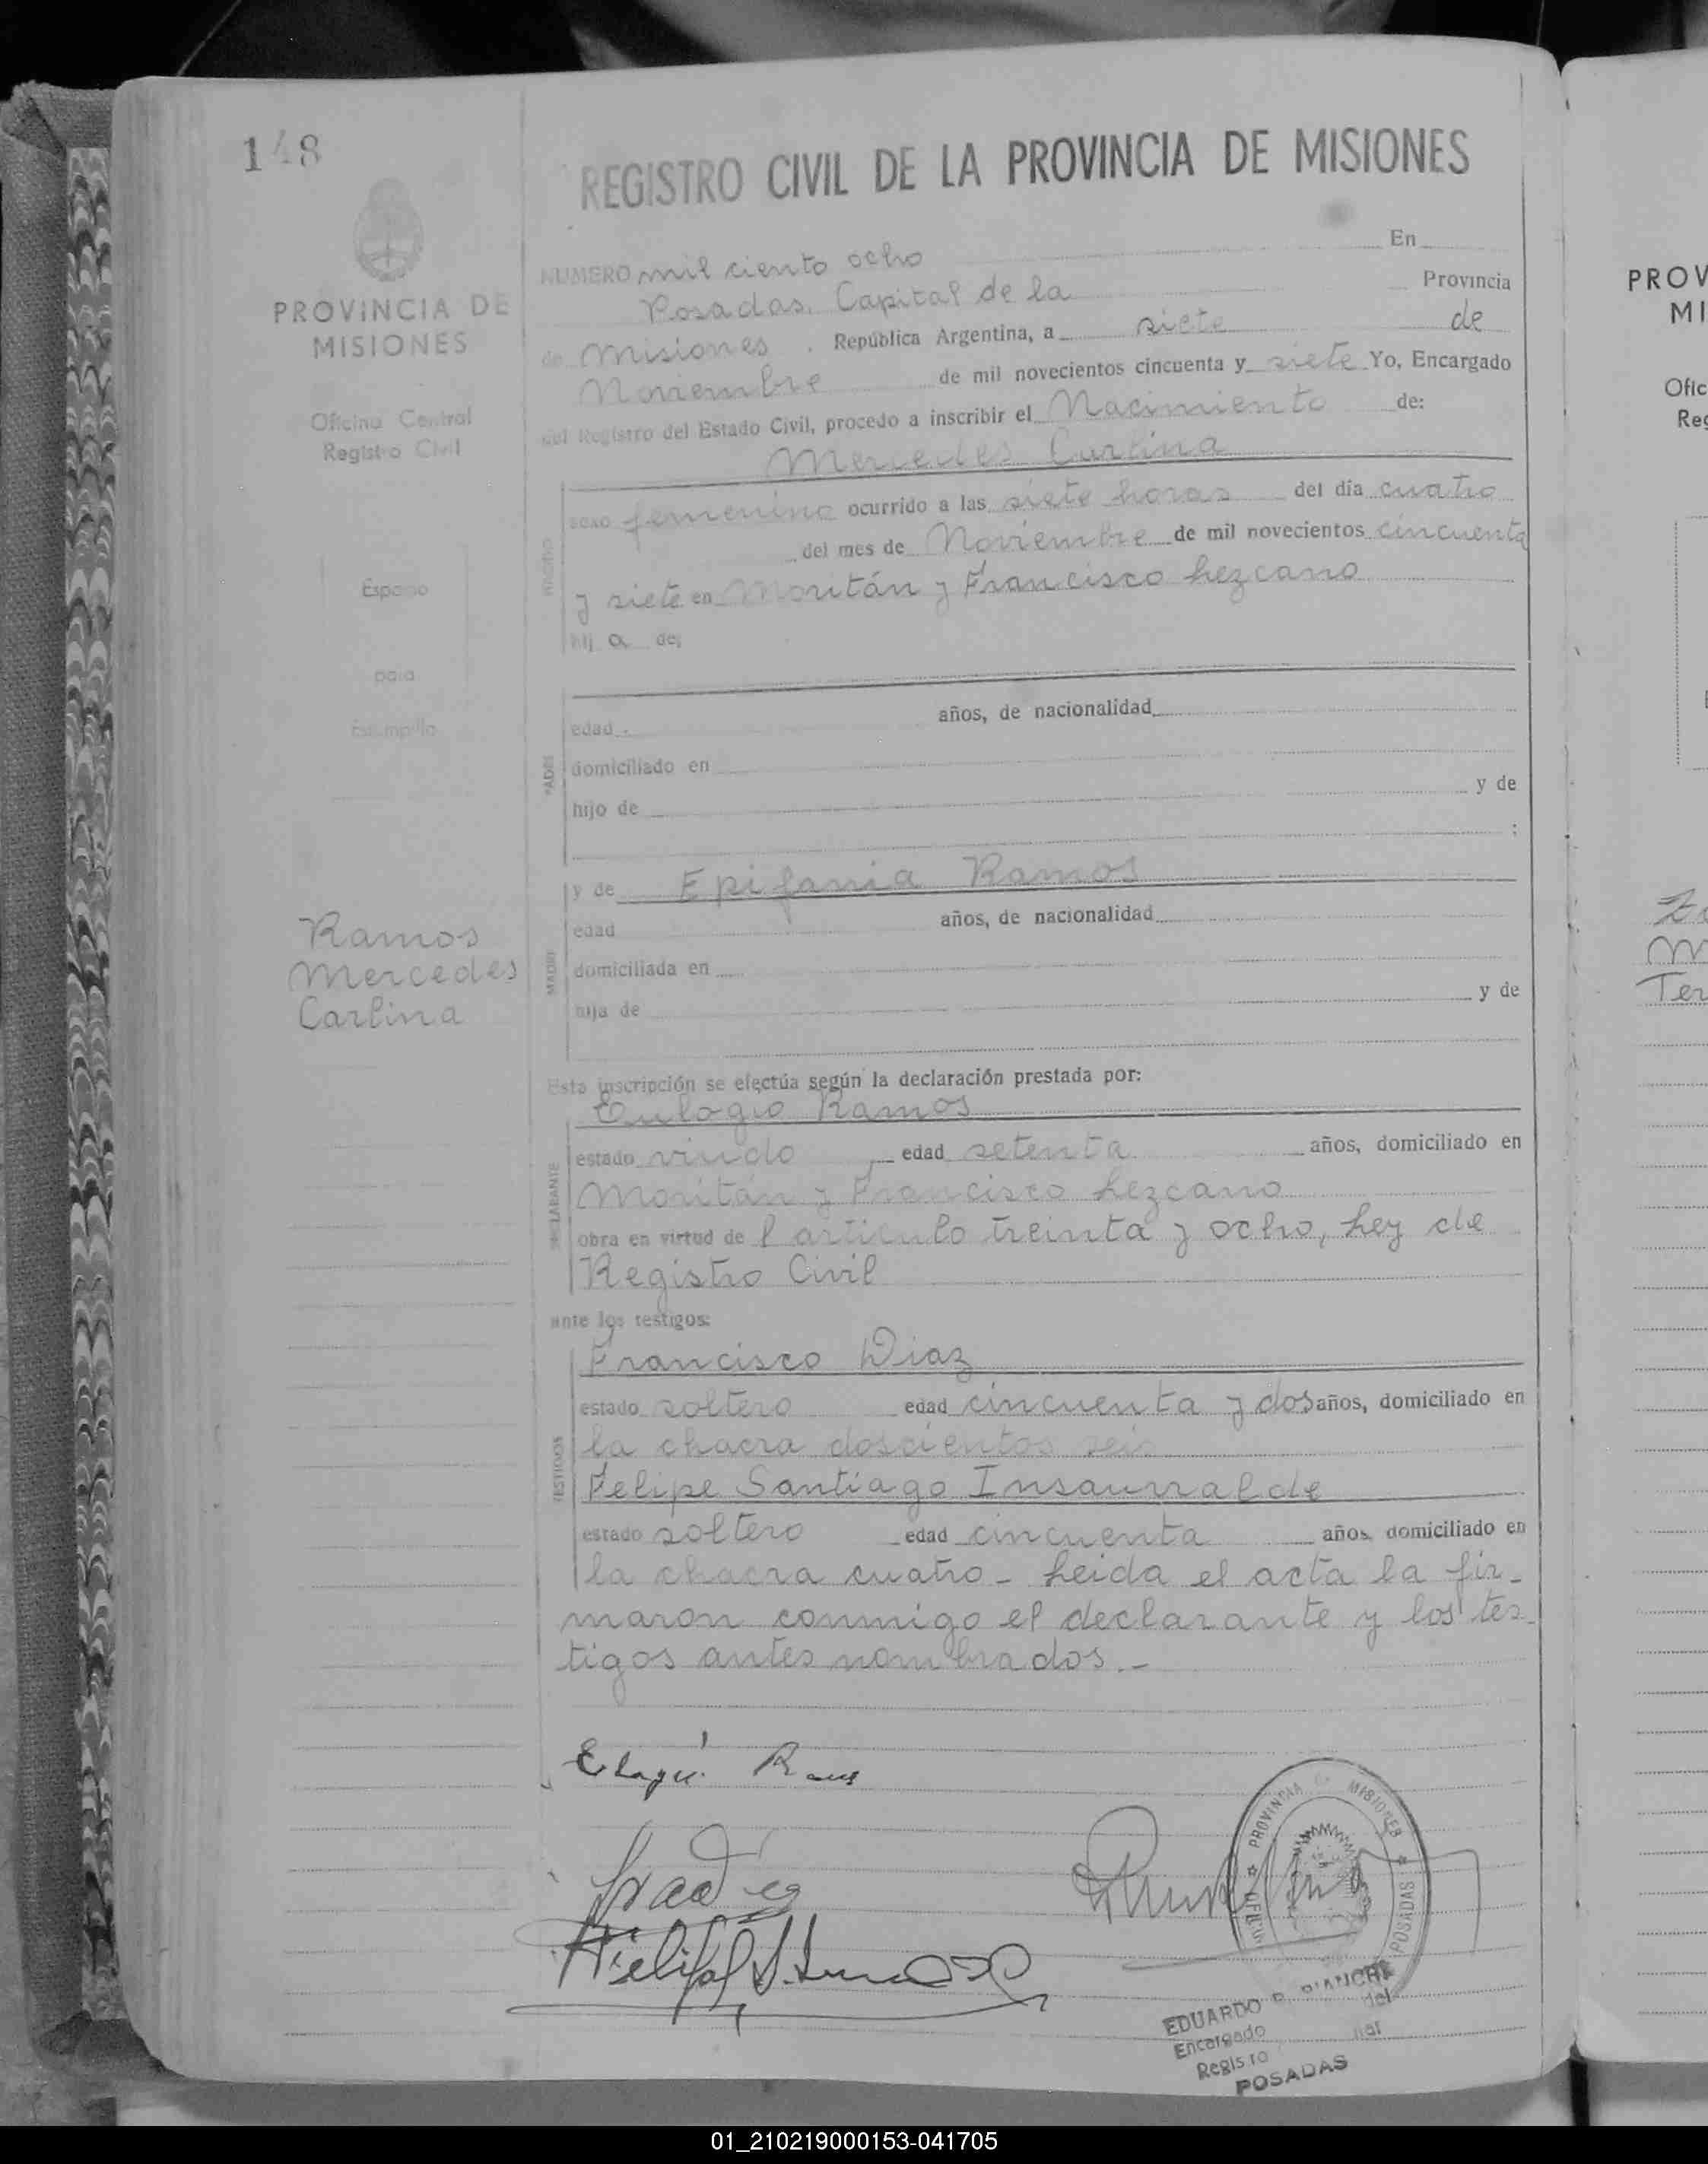 148
REGISTRO CIVIL DE LA PROVINCIA DE MISIONES
PROVINCIA DE
MISIONES
Oficina Central
Registro Civil
Espacio
para
Estampilla
Ramos
Mercedes
Carlina
NUMERO mil ciento ocho En
Posadas. Capital de la Provincia
de Misiones . República Argentina, a siete de
Noviembre de mil novecientos cincuenta y siete Yo, Encargado
del Registro del Estado Civil, procedo a inscribir el Nacimiento de:
Mercedes Carlina
sexo femenino ocurrido a las siete horas del día cuatro
del mes de Noviembre de mil novecientos cincuenta
y siete en Moritán y Francisco Lezcano
hij a de;
edad años, de nacionalidad
PADRE
domiciliado en
hijo de y de
;
y de Epifania Ramos
edad años, de nacionalidad
MADRE
domiciliada en
hija de y de
Esta inscripción se efectúa según la declaración prestada por:
Eulogio Ramos
estado viudo , edad setenta años, domiciliado en
DECLARANTE
Moritán y Francisco Lezcano
obra en virtud de l artículo treinta y ocho, Ley de
Registro Civil
ante los testigos:
Francisco Diaz
estado soltero edad cincuenta y dos años, domiciliado en
la chacra doscientos seis
TESTIGOS
Felipe Santiago Insaurralde
estado soltero edad cincuenta años, domiciliado en
la chacra cuatro - Leida el acta la fir-
maron conmigo el declarante y los tes-
tigos antes nombrados.-
PROVINCIA DE MISIONES
POSADAS
EDUARDO
Encargado del
Registro
POSADAS
PROV
MI
Ofic
Reg
M
Ter
01_210219000153-041705